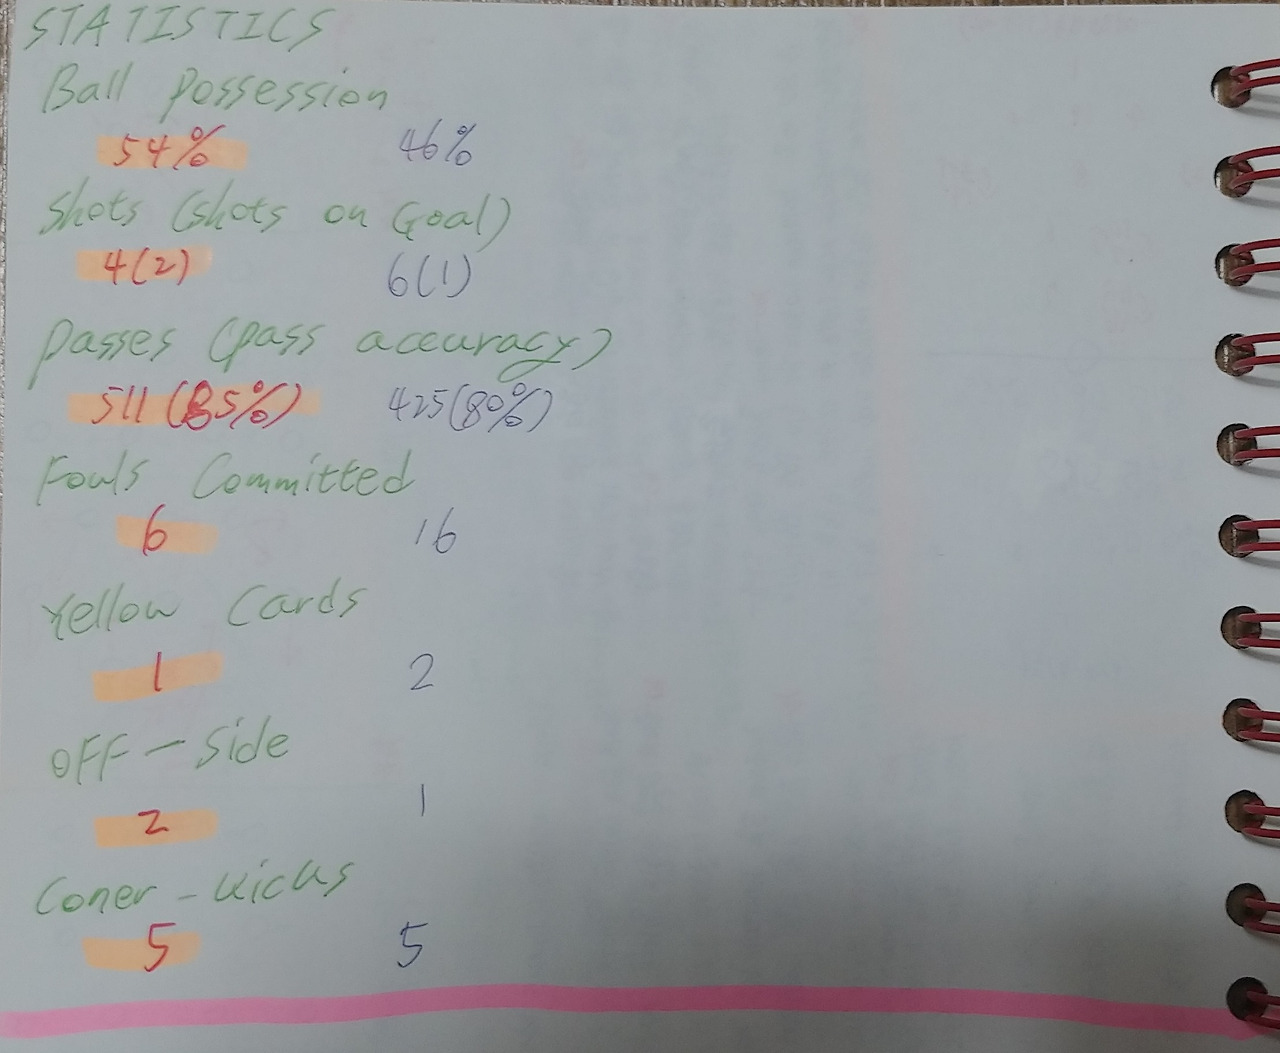 STATISTICS
Ball Possession
54% 46%
Shots (shots on Goal)
4(2) 6(1)
Passes (pass accuracy)
511(85%) 425(80%)
Fouls Committed
6 16
Yellow Cards
1 2
OFF-Side
2 1
Coner-kicks
5 5